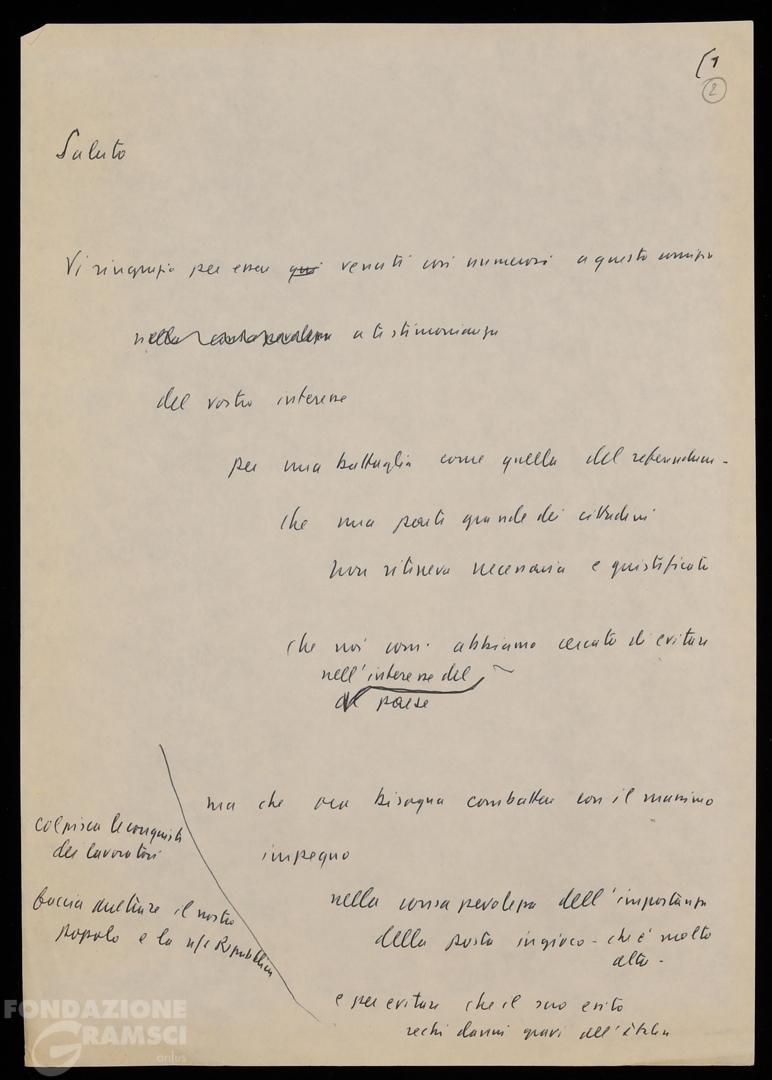 1
2
Saluto
Vi ringrazio per essere qui venuti così numerosi a questo comizio
nella consapevolezza a testimonianza
del vostro interesse
per una battaglia come quella del referendum -
che una parte grande dei cittadini
non riteneva necessaria e giustificata
che noi com. abbiamo cercato di evitare
nell'interesse del
paese
ma che ora bisogna combattere con il massimo
impegno
nella consapevolezza dell'importanza
della posta in gioco - che è molto
alta -
e per evitare che il suo esito
rechi danni gravi all'Italia
colpisca le conquiste
dei lavoratori
faccia arretrare il nostro
popolo e la n/s Repubblica
FONDAZIONE
GRAMSCI
onlus